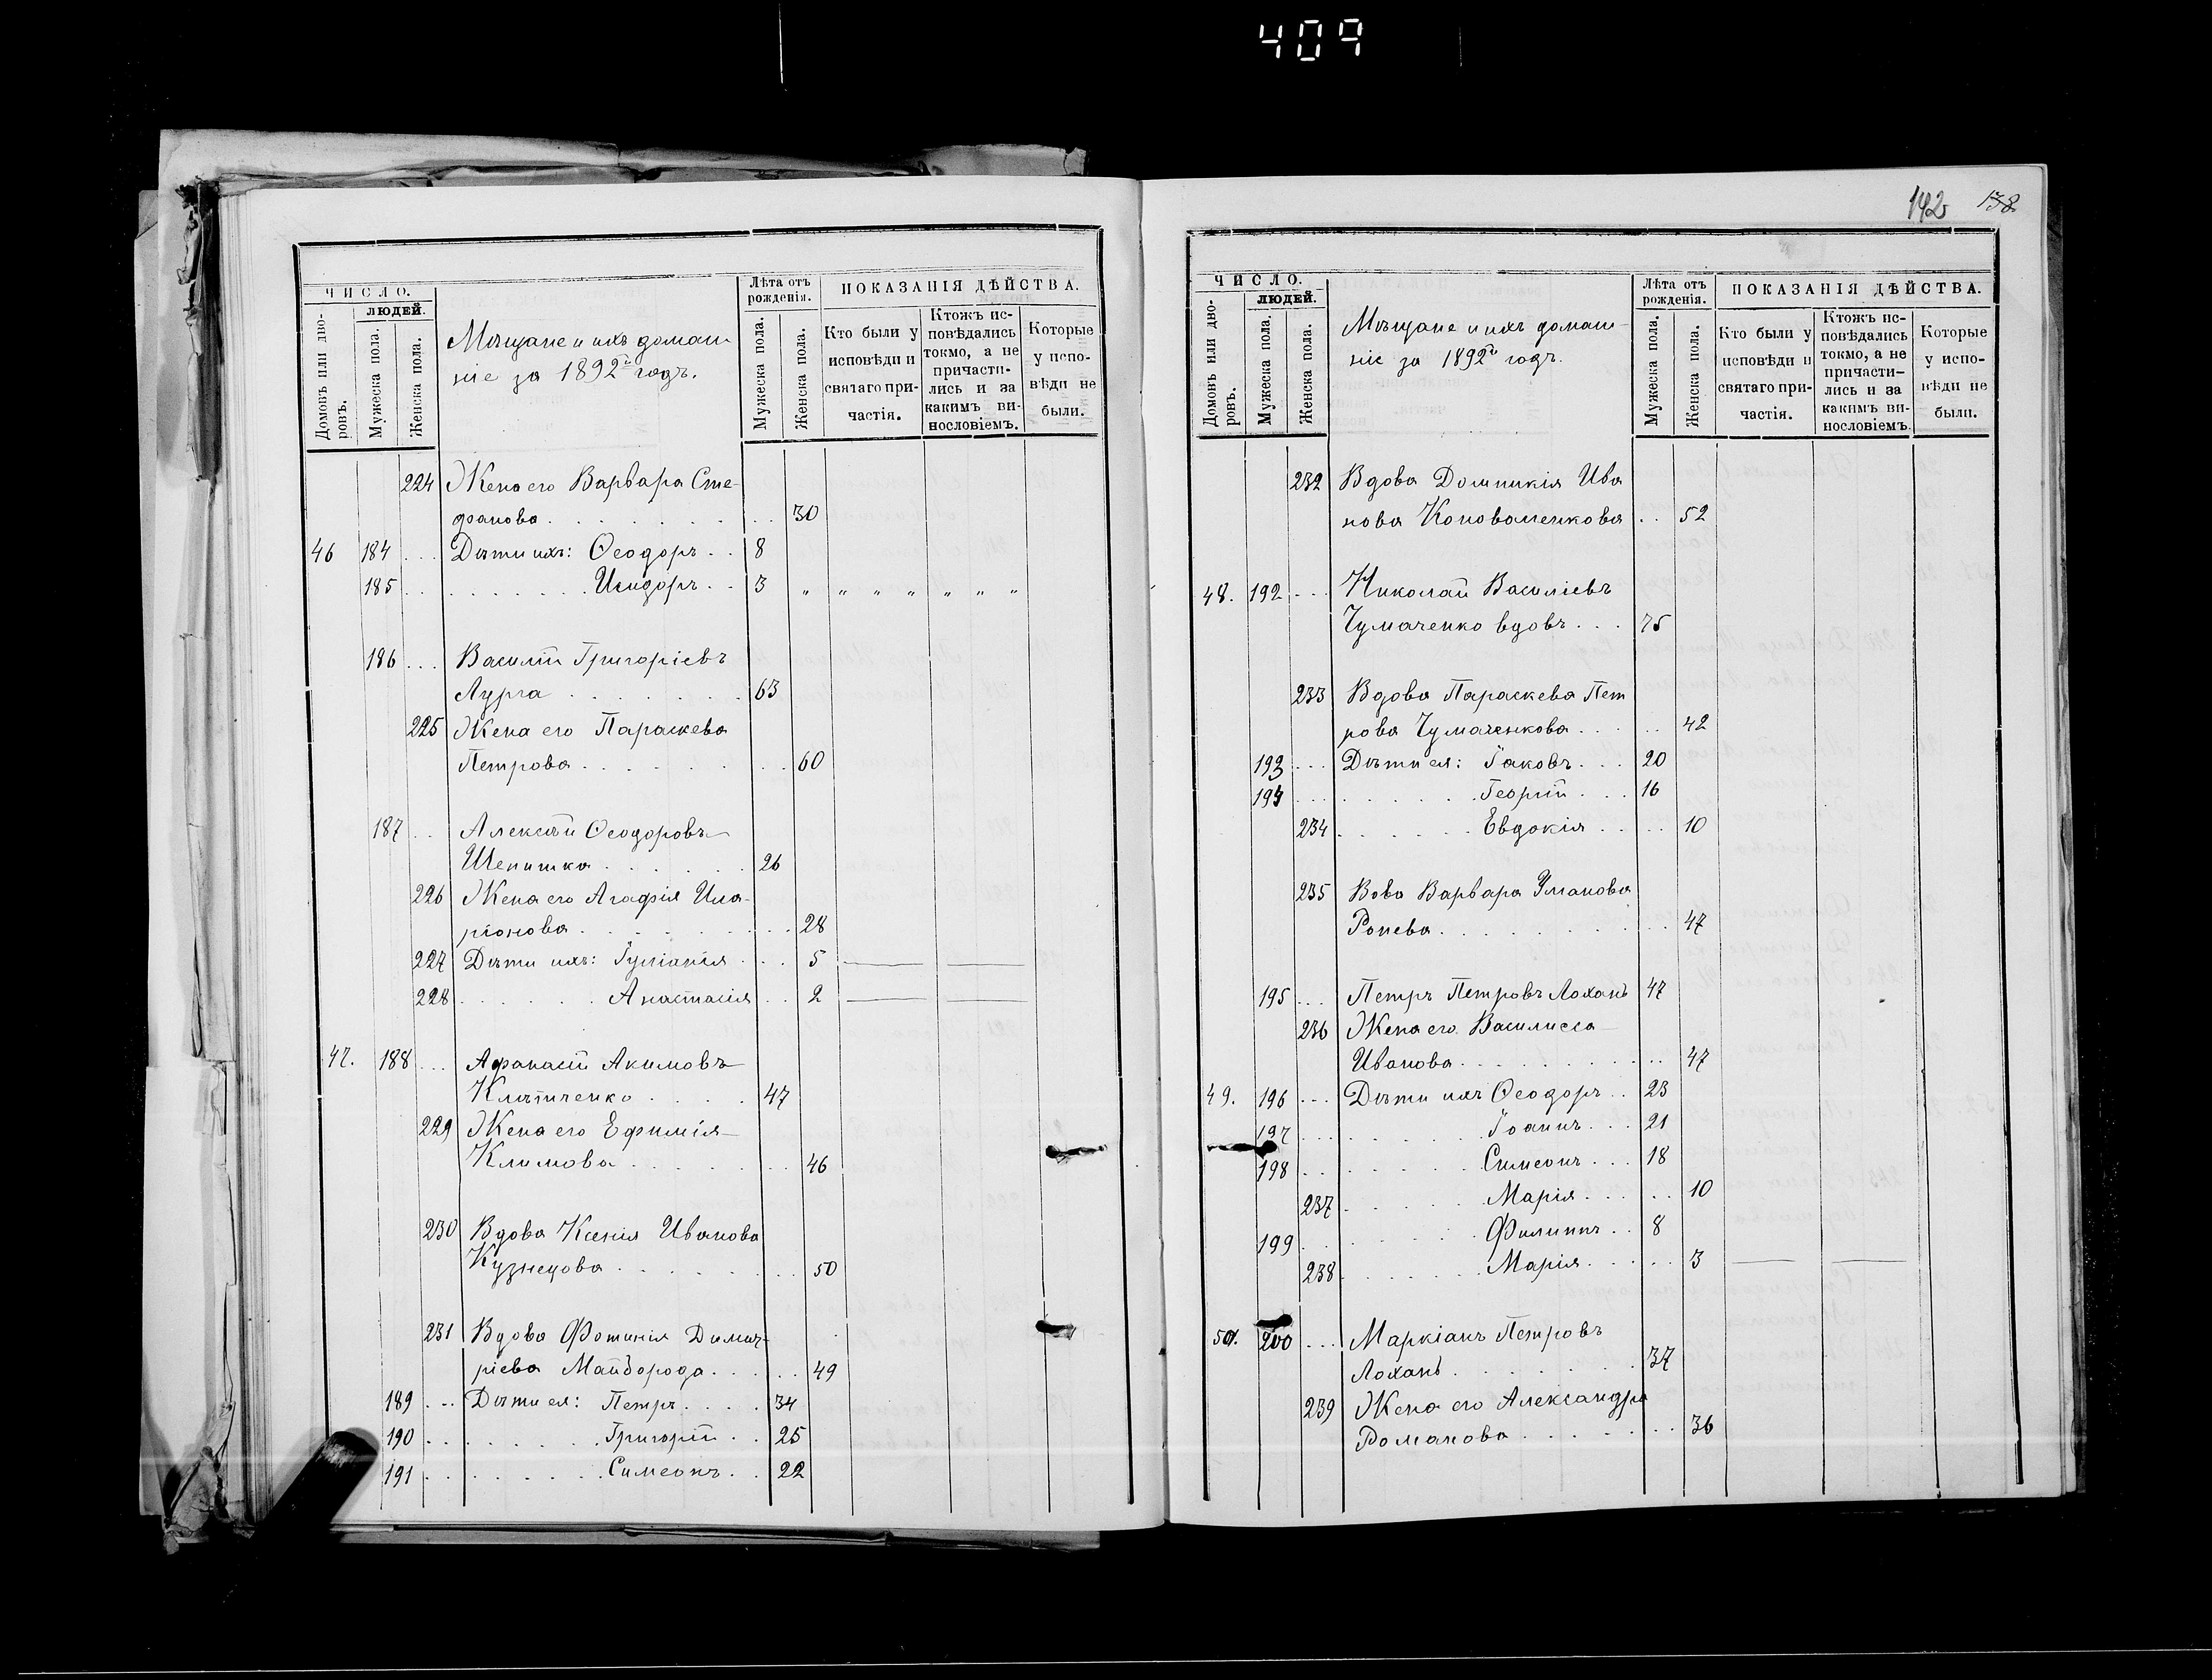 409
ЧИСЛО.
ЛЮДЕЙ.
Домовъ или дворовъ.
Мужеска пола.
Женска пола.
Мѣщане и ихъ домаш-
ніе за 1892й годъ.
Лѣта отъ
рожденія.
Мужеска пола.
Женска пола.
ПОКАЗАНІЯ ДѢЙСТВА.
Кто были у
исповѣди и
святаго при-
частія.
Ктожъ ис-
повѣдались
токмо, а не
причасти-
лись и за
какимъ ви-
нословіемъ.
Которые
у испо-
вѣди не
были.
224 Жена его Варвара Сте-
фанова . . . 30
46 184 . . . Дѣти ихъ: Ѳеодоръ . . 8
185 . . . Исидоръ . . 3 „ „ „ „ „ „ „
186 . . . Василій Григоріевъ
Лурга . . . 63
225 Жена его Параскева
Петрова . . . 60
187 . . Алексѣй Ѳеодоровъ
Шепитка . . . 26
226 Жена его Агафія Ила-
ріонова . . . 28
227 Дѣти ихъ: Іуліанія . . . 5 — —
228 . . . Анастасія . . 2 — —
47. 188 . . . Афанасій Акимовъ
Клѣтиченко . . . 47
229 Жена его Ефимія
Климова . . . 46
230 Вдова Ксенія Иванова
Кузнецова . . . 50
231 Вдова Фотинія Димит-
ріева Майборода . . . 49
189 . . . Дѣти ея: Петръ . . . 34
190 . . . Григорій . . 25
191 . . . Симеонъ . . 22
142 138
ЧИСЛО.
ЛЮДЕЙ.
Домовъ или дворовъ.
Мужеска пола.
Женска пола.
Мѣщане и ихъ домаш-
ніе за 1892й годъ.
Лѣта отъ
рожденія.
Мужеска пола.
Женска пола.
ПОКАЗАНІЯ ДѢЙСТВА.
Кто были у
исповѣди и
святаго при-
частія.
Ктожъ ис-
повѣдались
токмо, а не
причасти-
лись и за
какимъ ви-
нословіемъ.
Которые
у испо-
вѣди не
были.
232 Вдова Домникія Ива
нова Коноваленкова . . 52
48. 192 . . . Николай Василіевъ
Чумаченко вдовъ . . . 75
233 Вдова Параскева Пет
рова Чумаченкова . . . 42
193 . . . Дѣти ея: Іаковъ . . . 20
194 . . . Георгій . . . 16
234 . . . Евдокія . . . 10
235 Вова Варвара
Ропева . . . 47
195 . . . Петръ Петровъ Лоханъ 47
236 Жена его Василисса
Иванова . . . 47
49. 196 . . . Дѣти ихъ Ѳеодоръ . . 23
197 . . . Іоаннъ . . . 21
198 . . . Симеонъ . . . 18
237 . . . Марія . . . 10
199 . . . Филиппъ . . 8
238 . . . Марія . . . 3 — — —
50. 200 . . . Маркіанъ Петровъ
Лоханъ . . . 37
239 Жена его Александра
Романова . . . 36